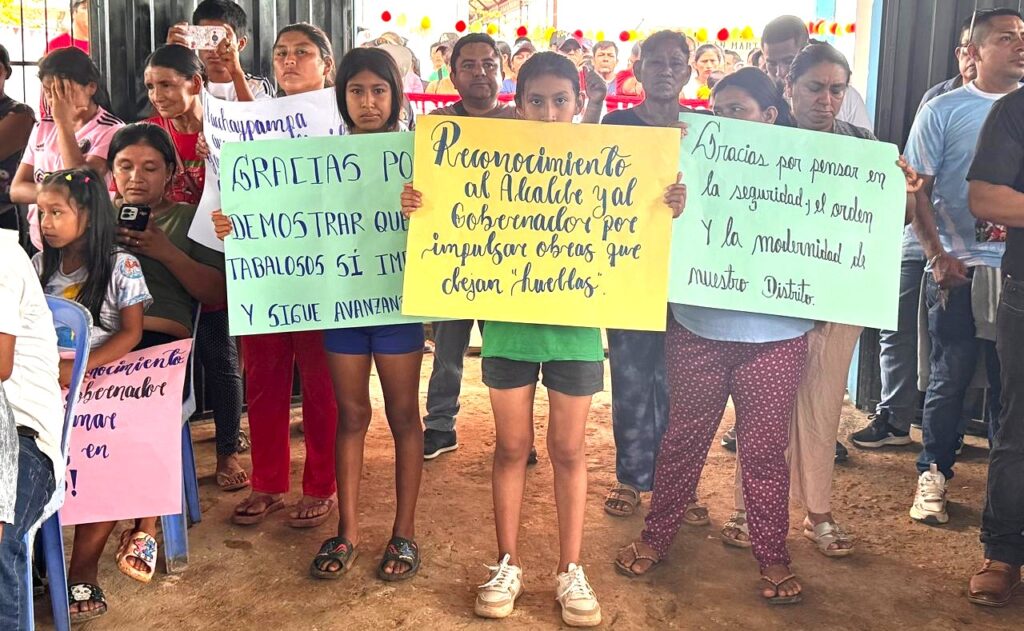 uchaypampa
GRACIAS PO
DEMOSTRAR QUE
TABALOSOS SÍ IM
Y SIGUE AVANZAN
Reconocimiento
al Alcalde y al
Gobernador por
impulsar obras que
dejan "hueblas".
Gracias por pensar en
la seguridad, el orden
Y la modernidad de
nuestro Distrito.
nocimiento
bernador
mar
en
!
MAR